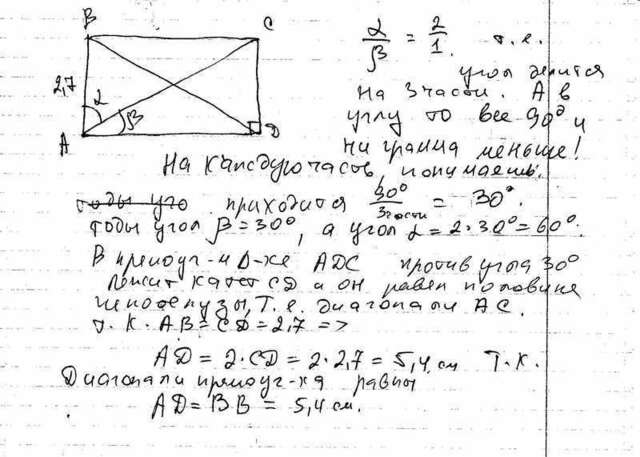 B
C
2,7
α
β
A
D
α/β = 2/1. т.е.
угол делится
на 3 части. А в
углу то все 90° и
ни грамма меньше!
На каждую часть, понимаешь,
приходится 90°/3 части = 30°.
тоды угол β = 30°, а угол α = 2·30° = 60°.
В прямоуг-м Δ-ке ADC против угла 30°
лежит катет CD и он равен половине
гипотенузы, т.е. диагонали AC.
т.к. AB = CD = 2,7 =>
AD = 2·CD = 2·2,7 = 5,4 см т.к.
Диагонали прямоуг-ка равны
AD = BB = 5,4 см.